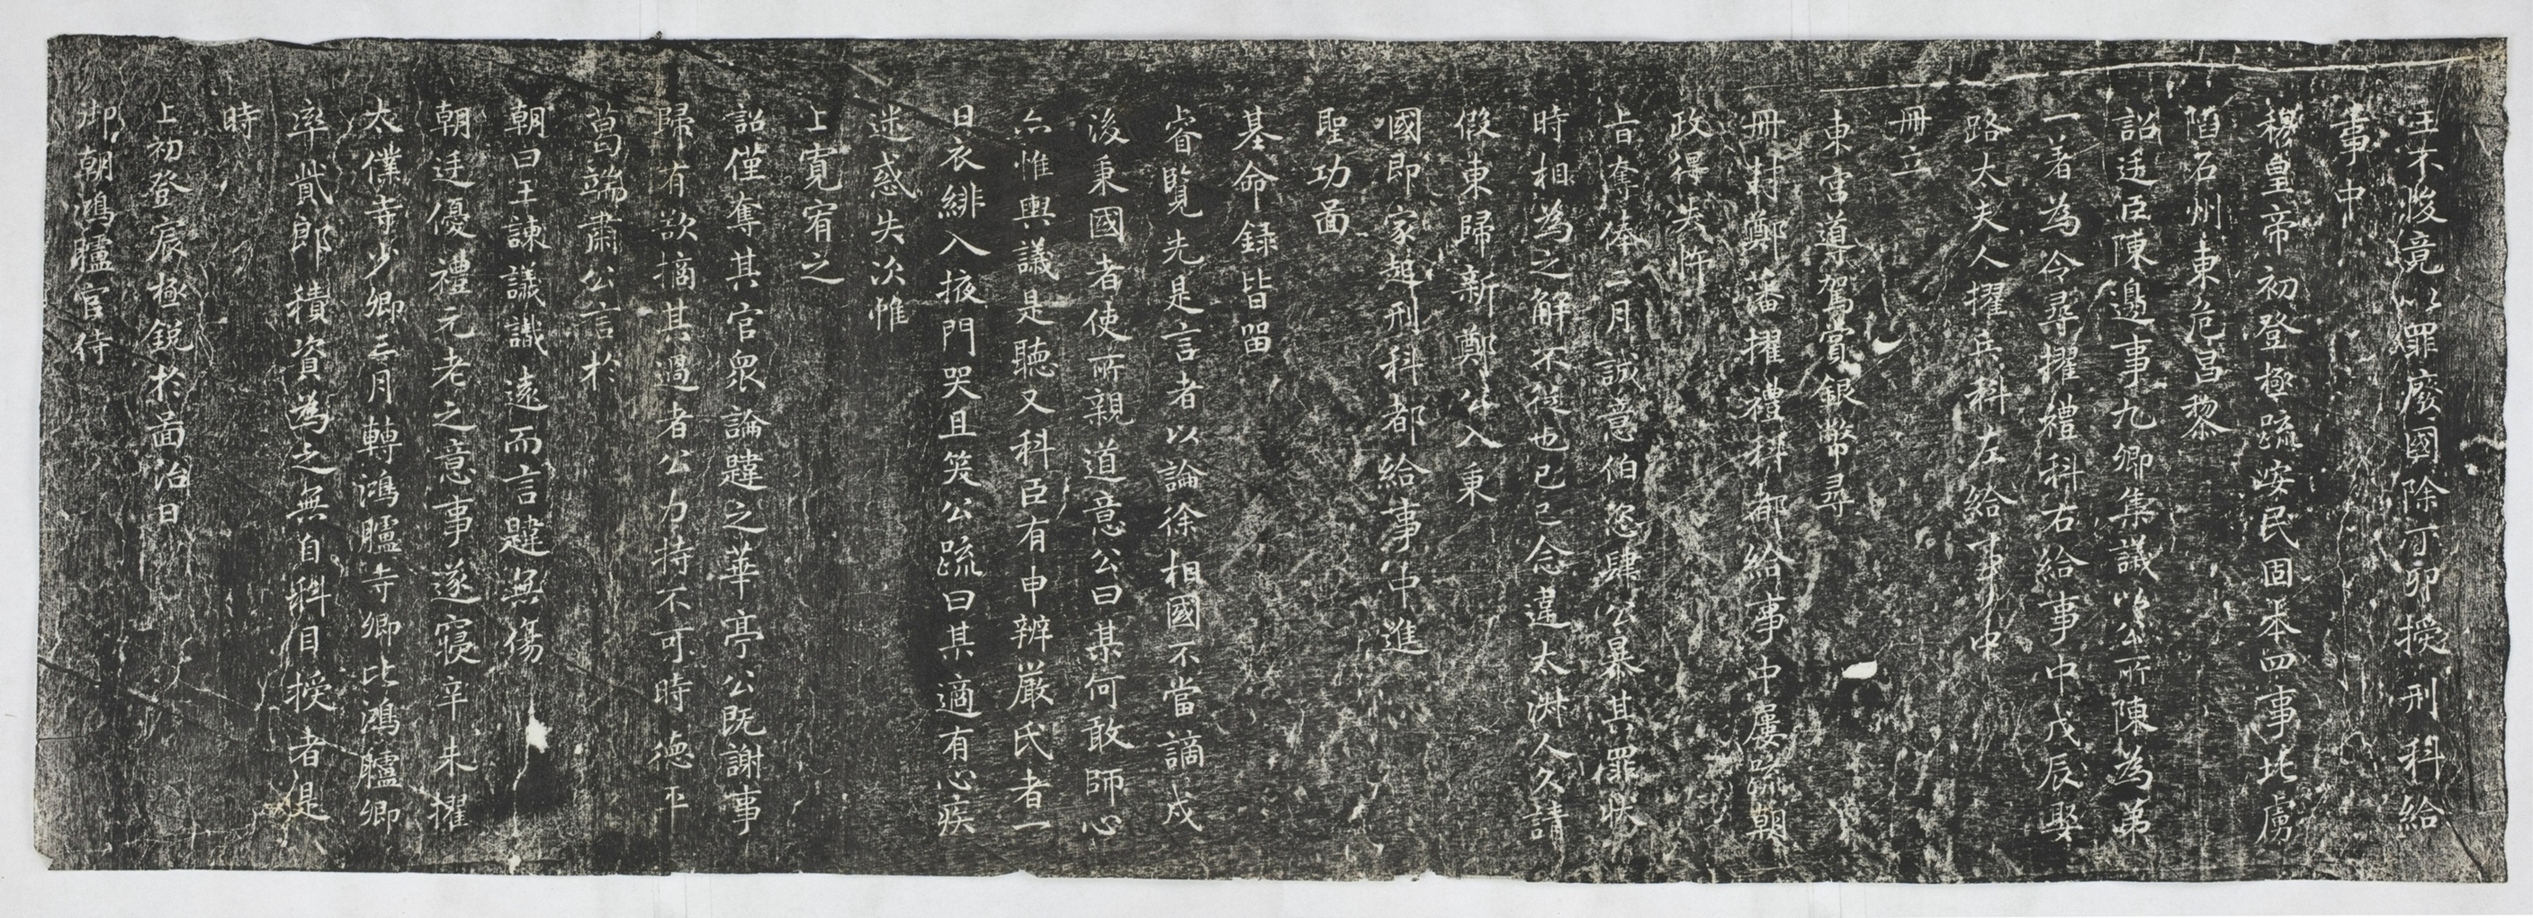 王不悛竟以罪廢國除丁卯授刑科給
事中
穆皇帝初登極疏安民固本四事北虜
陷石州東危昌黎
詔廷臣陳邊事九卿集議以公所陳為第
一著為令尋擢禮科右給事中戊辰娶
路太夫人擢兵科左給事中
冊立
東宮導駕賞銀幣尋
冊封鄭藩擢禮科都給事中屢疏朝
政得失忤
旨奪俸二月誠意伯恣肆公暴其罪狀
時相為之解不從也己巳念違太淑人久請
假東歸新鄭公入秉
國即家起刑科都給事中進
聖功啚
基命録皆留
睿覽先是言者以論徐相國不當謫戍
後秉國者使所親道意公曰某何敢師心
亦惟輿議是聽又科臣有申辨嚴氏者一
日衣緋入掖門哭且笑公疏曰其適有心疾
迷惑失次惟
上寬宥之
詔僅奪其官衆論韙之華亭公既謝事
歸有欲摘其過者公力持不可時德平
葛端肅公言於
朝曰王諫議識遠而言韙無傷
朝廷優禮元老之意事遂寢辛未擢
太僕寺少卿三月轉鴻臚寺卿比鴻臚卿
率貲郎積資為之無自科目授者是
時
上初登宸極銳於啚治日
御朝鴻臚官侍